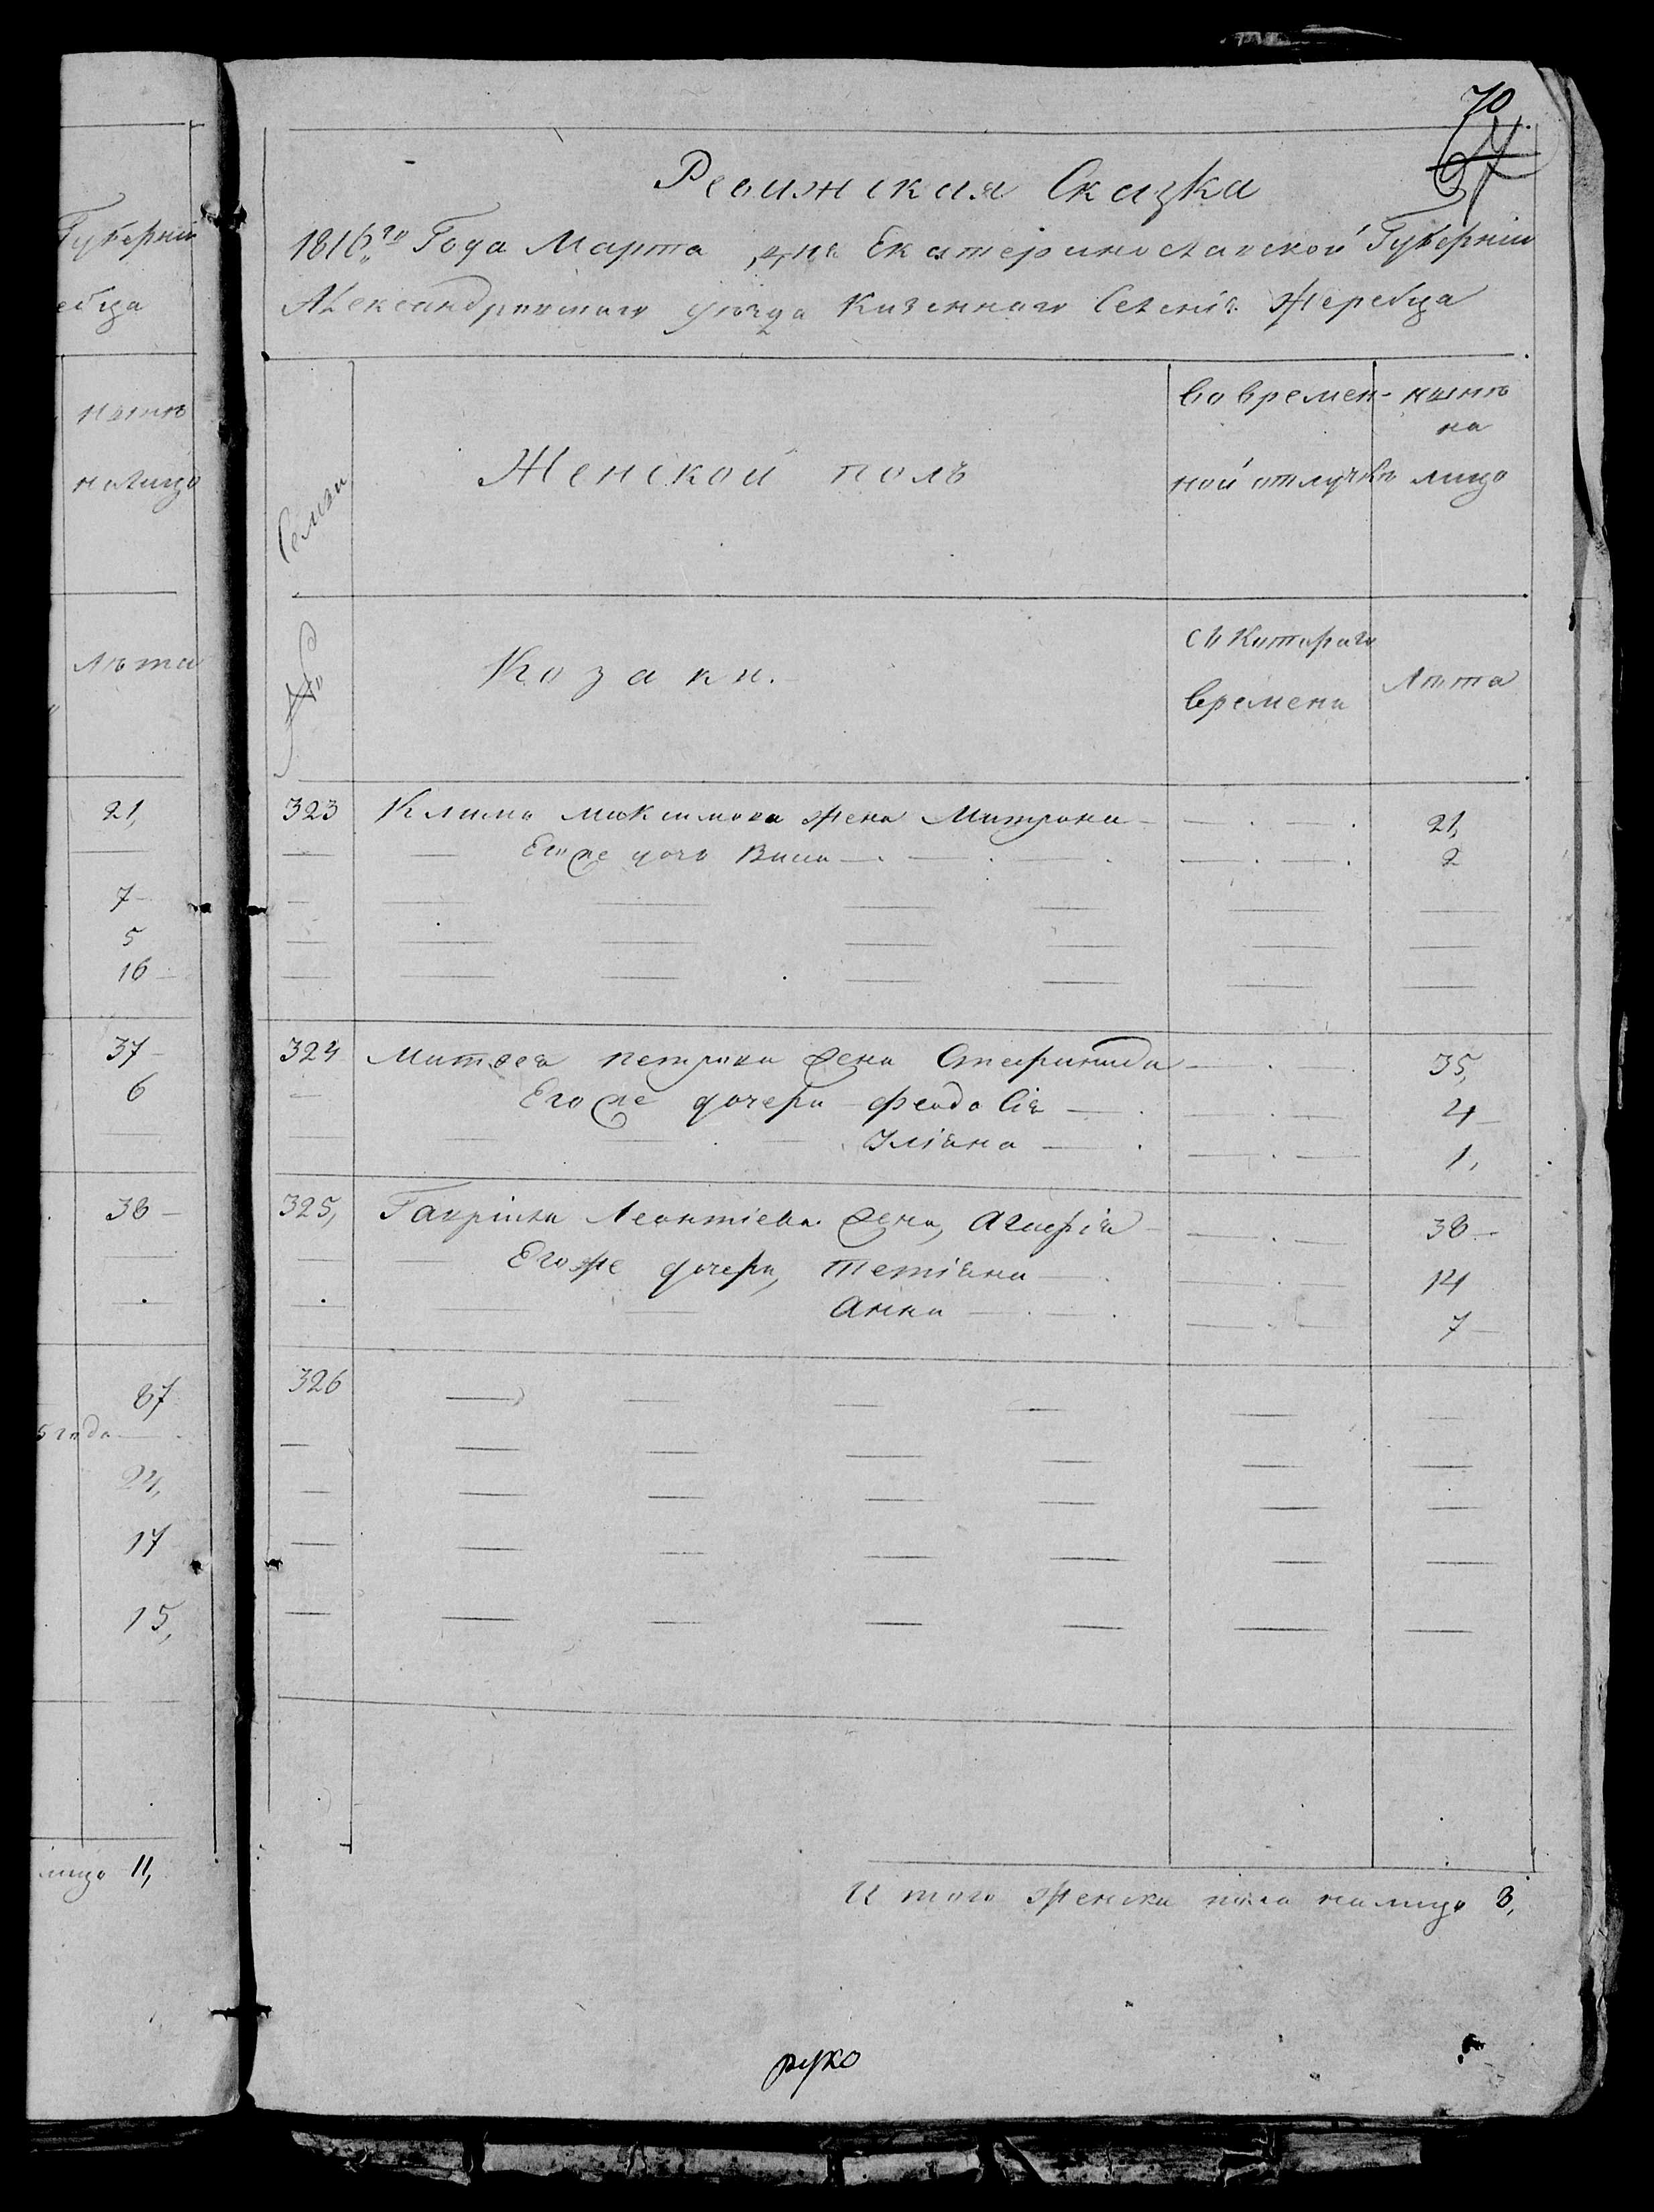 Губерніи
ебца
нынѣ
налицо
Лѣта
21,
7
5
16
37
6
38
87
5 года
24,
17
15,
лицо 11,
70
67
Ревижская Сказка
1816го Года Марта дня Екатеринославской Губерніи
Александровского уѣзда Казенного Селенія Жеребца
Семьи
Женской полъ
во времен- нынѣ
на
ной отлучкѣ лицо
№
Козаки.
съ Котораго
времени
Лѣта
323 Клима Максимова жена Матрона 21,
Егоже дочь Васа 2
324 Матвея петрова жена Стефанида 35,
Егоже дочери феодосія 4
Уліяна 1,
325, Гавріила Леонтіева жена, Агафія 38
Егоже дочери, Тетіяна 14
Анна 7
326
Итого женска пола налицо 8,
руко